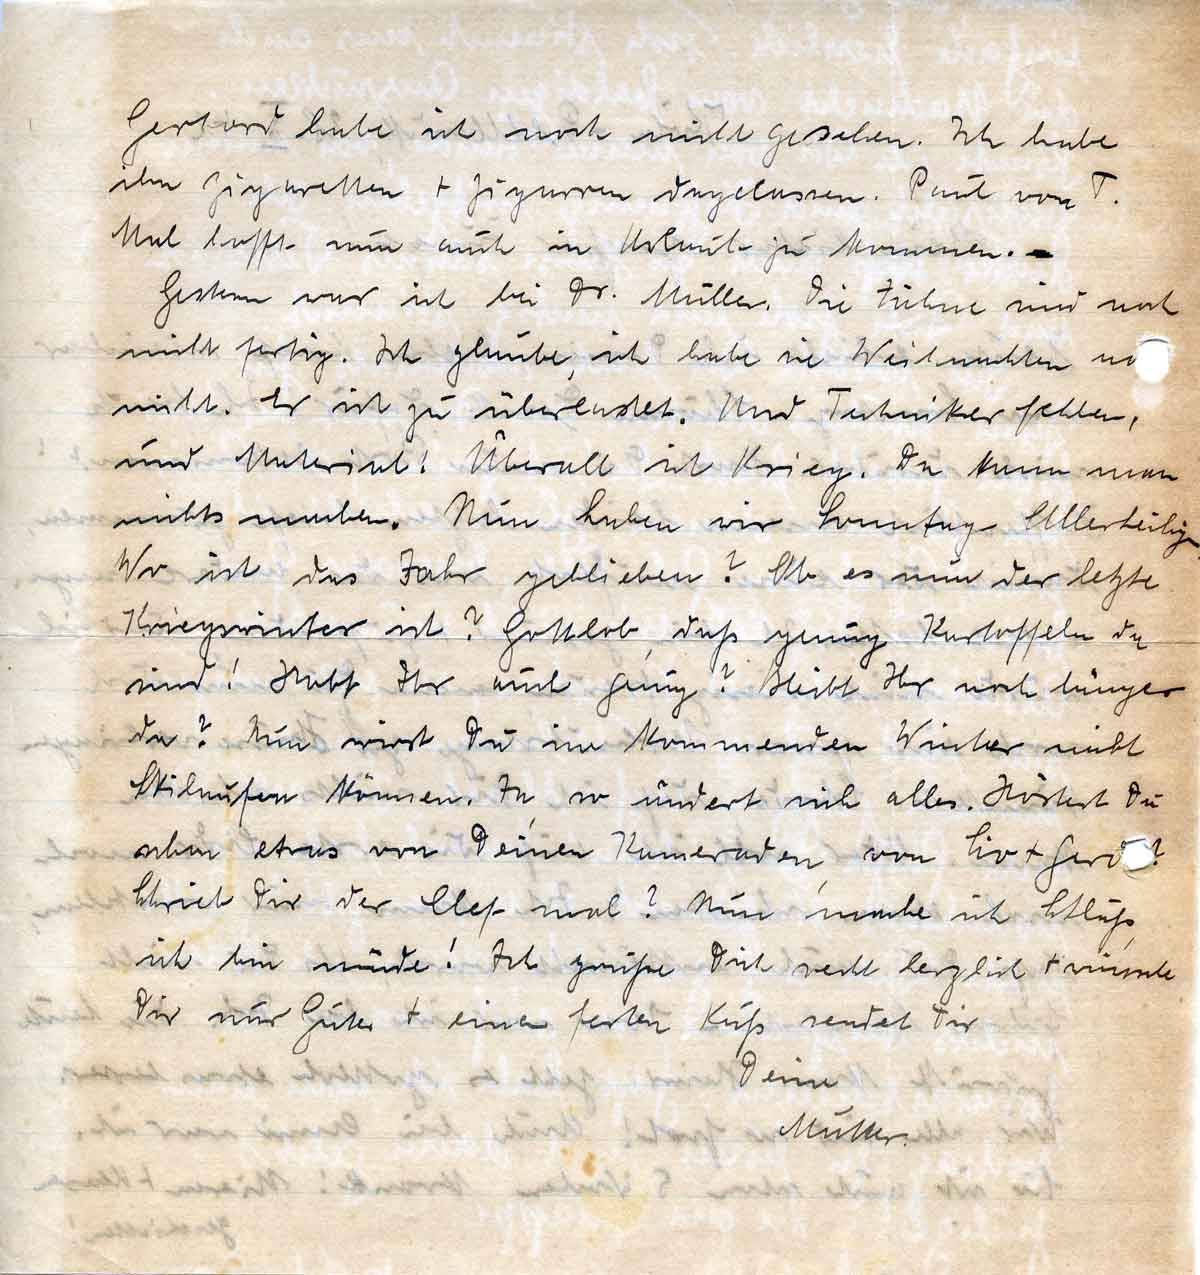 Gerhard habe ich noch nicht gesehen. Ich habe
ihm Zigaretten + Zigarren dagelassen. Paul von T.
Mal hofft nun auch in Urlaub zu kommen. -
Gestern war ich bei Dr. Müller. Die Zähne sind noch
nicht fertig. Ich glaube, ich habe sie Weihnachten no
nicht. Er ist zu überlastet. Und Techniker fehlen,
und Material! Überall ist Krieg. Da kann man
nichts machen. Nun haben wir Sonntag Allerheilig
Wo ist das Jahr geblieben? Ob es nun der letzte
Kriegswinter ist? Gottlob, daß genug Kartoffeln da
sind! Habt Ihr auch genug? Bleibt Ihr noch länger
da? Nun wirst Du im kommenden Winter nicht
Skilaufen können. Ja, so ändert sich alles. Hörtest Du
schon etwas von Deinen Kameraden, von + Gerd?
Schrieb Dir der Chef mal? Nun mache ich Schluß,
ich bin müde! Ich grüße Dich recht herzlich + wünsche
Dir nur Gutes + einen festen Kuß sendet Dir
Deine
Mutter.